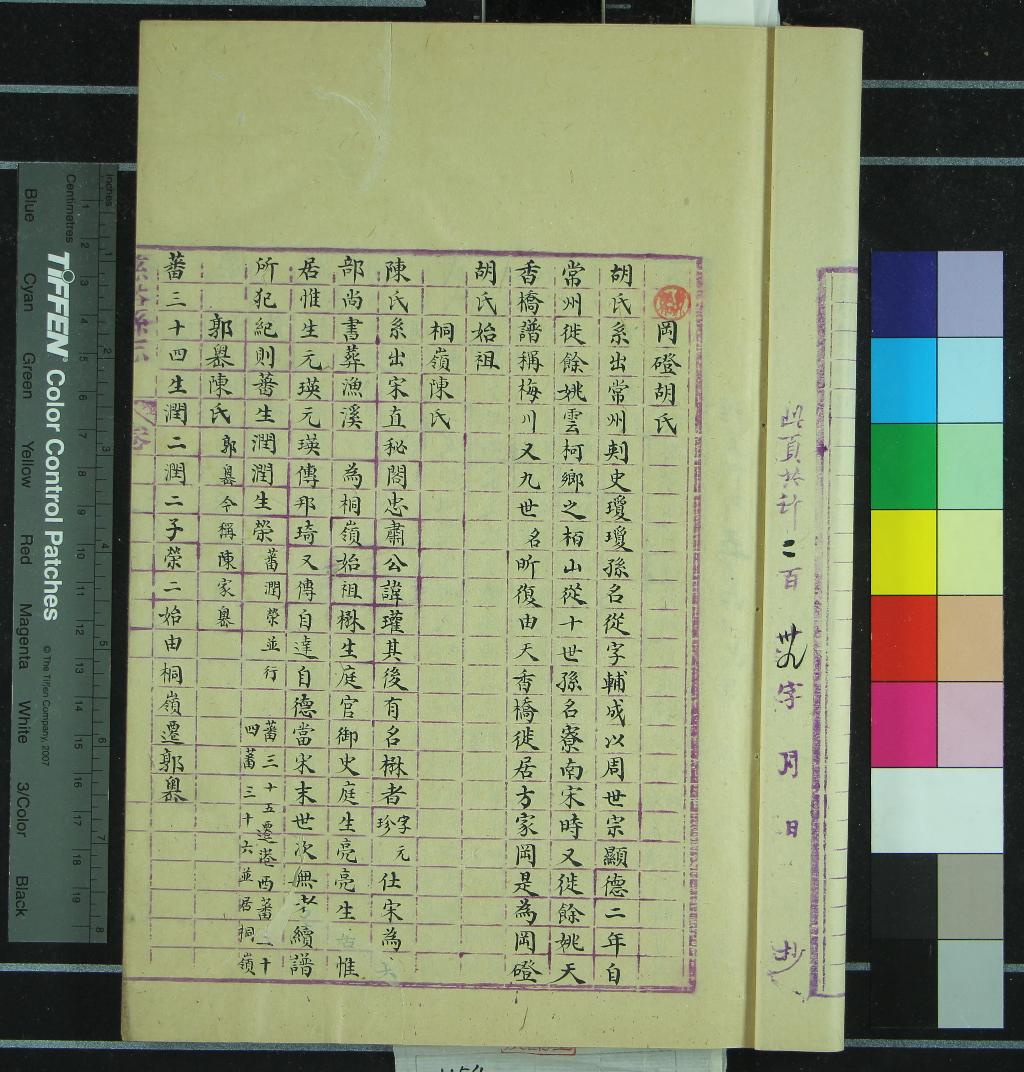 岡磴胡氏
胡氏系出常州刺史瓊瓊孫名從字輔成以周世宗顯德二年自
常州徙餘姚雲柯鄉之栢山從十世孫名寮南宋時又徙餘姚天
香橋譜稱梅川又九世名昕復由天香橋徙居方家岡是為岡磴
胡氏始祖
桐嶺陳氏
陳氏系出宋直秘閣忠肅公諱瓘其後有名楙者字元珍仕宋為
部尚書葬漁溪為桐嶺始祖楙生庭官御史庭生亮亮生惟
居惟生元瑛元瑛傳邦琦又傳自達自德當宋末世次無考續譜
所犯紀則蕃生潤潤生榮蕃潤榮並行蕃三十五遷塟西蕃二十四蕃三十六並居桐嶺
郭㠗陳氏郭㠗今稱陳家㠗
蕃三十四生潤二潤二子榮二始由桐嶺遷郭㠗
此頁共計二百卅九字 月 日 抄
Inches
Centimetres
TIFFEN® Color Control Patches
© The Tiffen Company, 2007
Blue Cyan Green Yellow Red Magenta White 3/Color Black